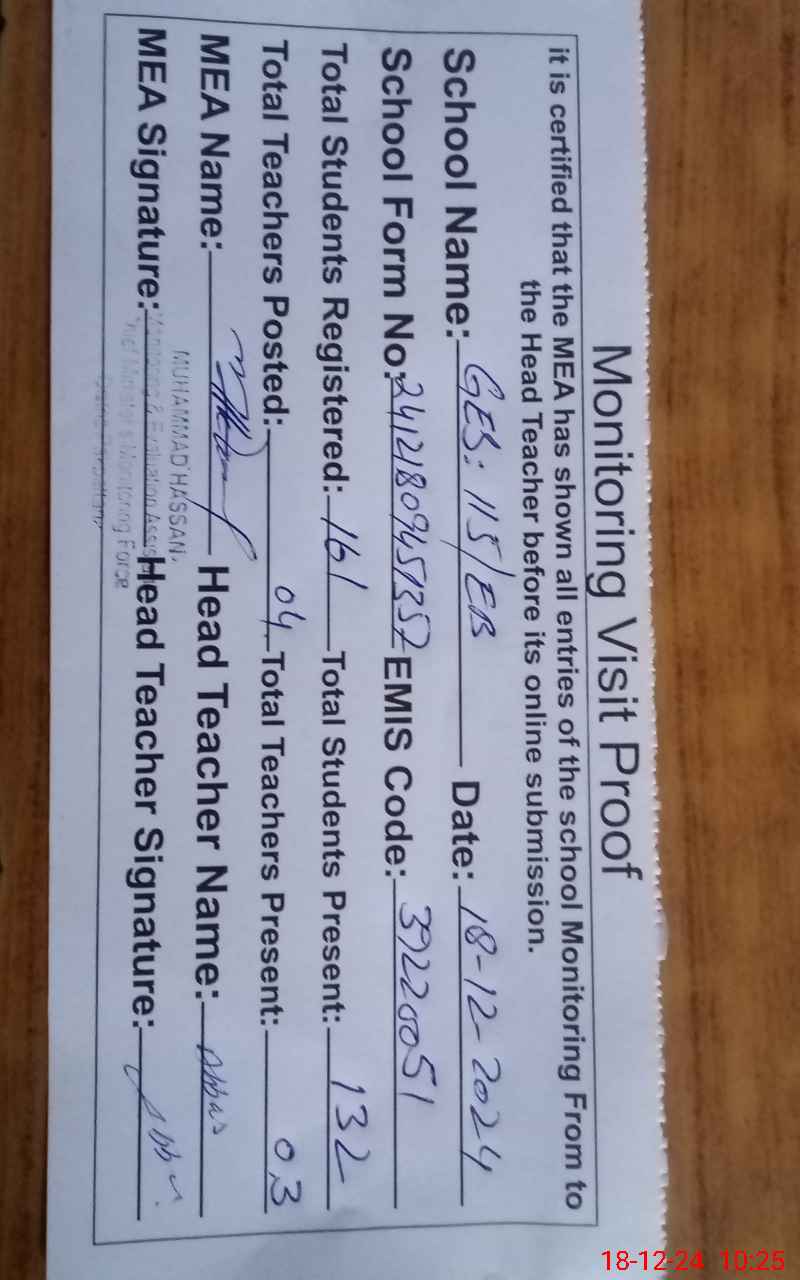 Monitoring Visit Proof
it is certified that the MEA has shown all entries of the school Monitoring From to
the Head Teacher before its online submission.
School Name: GES: 115/EB Date: 18-12-2024
School Form No: 24121809451357 EMIS Code: 39220051
Total Students Registered: 161 Total Students Present: 132
Total Teachers Posted: 04 Total Teachers Present: 03
MEA Name: Head Teacher Name: Abbas
MUHAMMAD HASSAN
MEA Signature: Head Teacher Signature: Abbas
Monitoring & Evaluation
Chief Minister's Monitoring Force
18-12-24 10:25